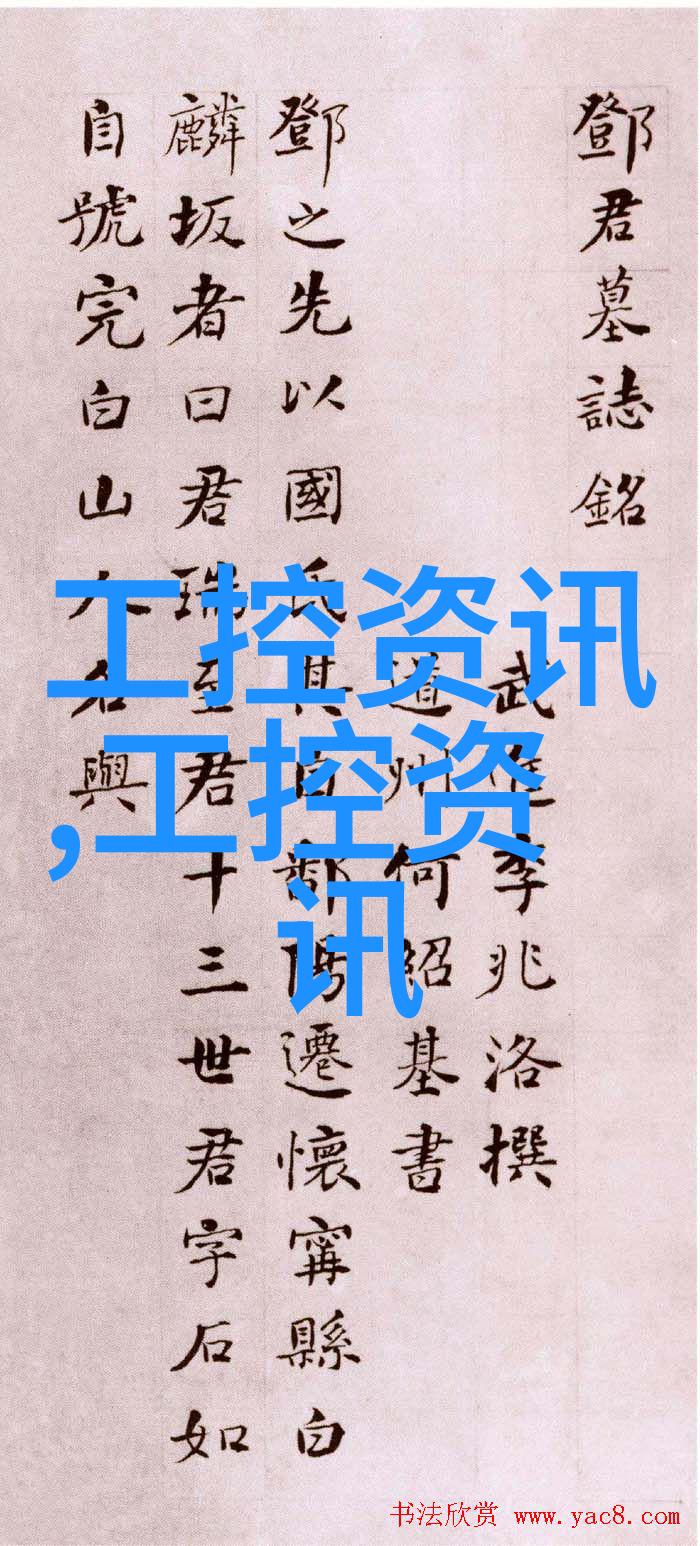 鄧君墓誌銘
武進李兆洛撰
道州何紹基書
鄧之先以國氏其自鄱陽遷懷寗縣白
麟坂者曰君瑞至君十三世君字石如
自號完白山人名與
工控资讯
,工控资
讯
书法欣赏 www.yac8.com